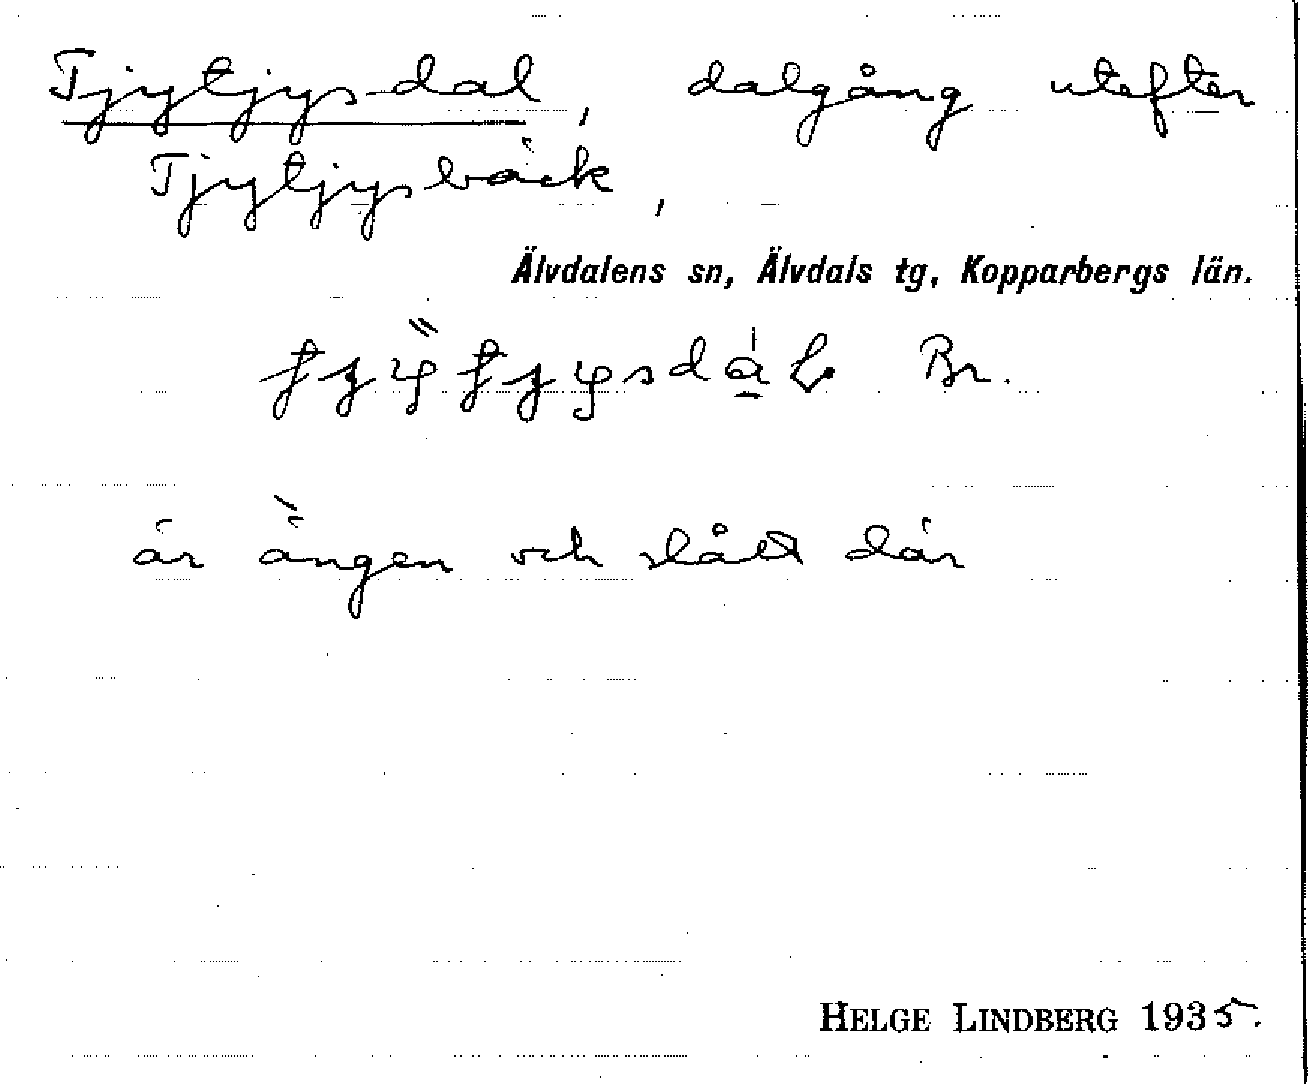 Tjytjysdal, dalgång utefter
Tjytjysbäck,
Älvdalens sn, Älvdals tg, Kopparbergs län.
Br.
är ängen och slått där
HELGE LINDBERG 1935.